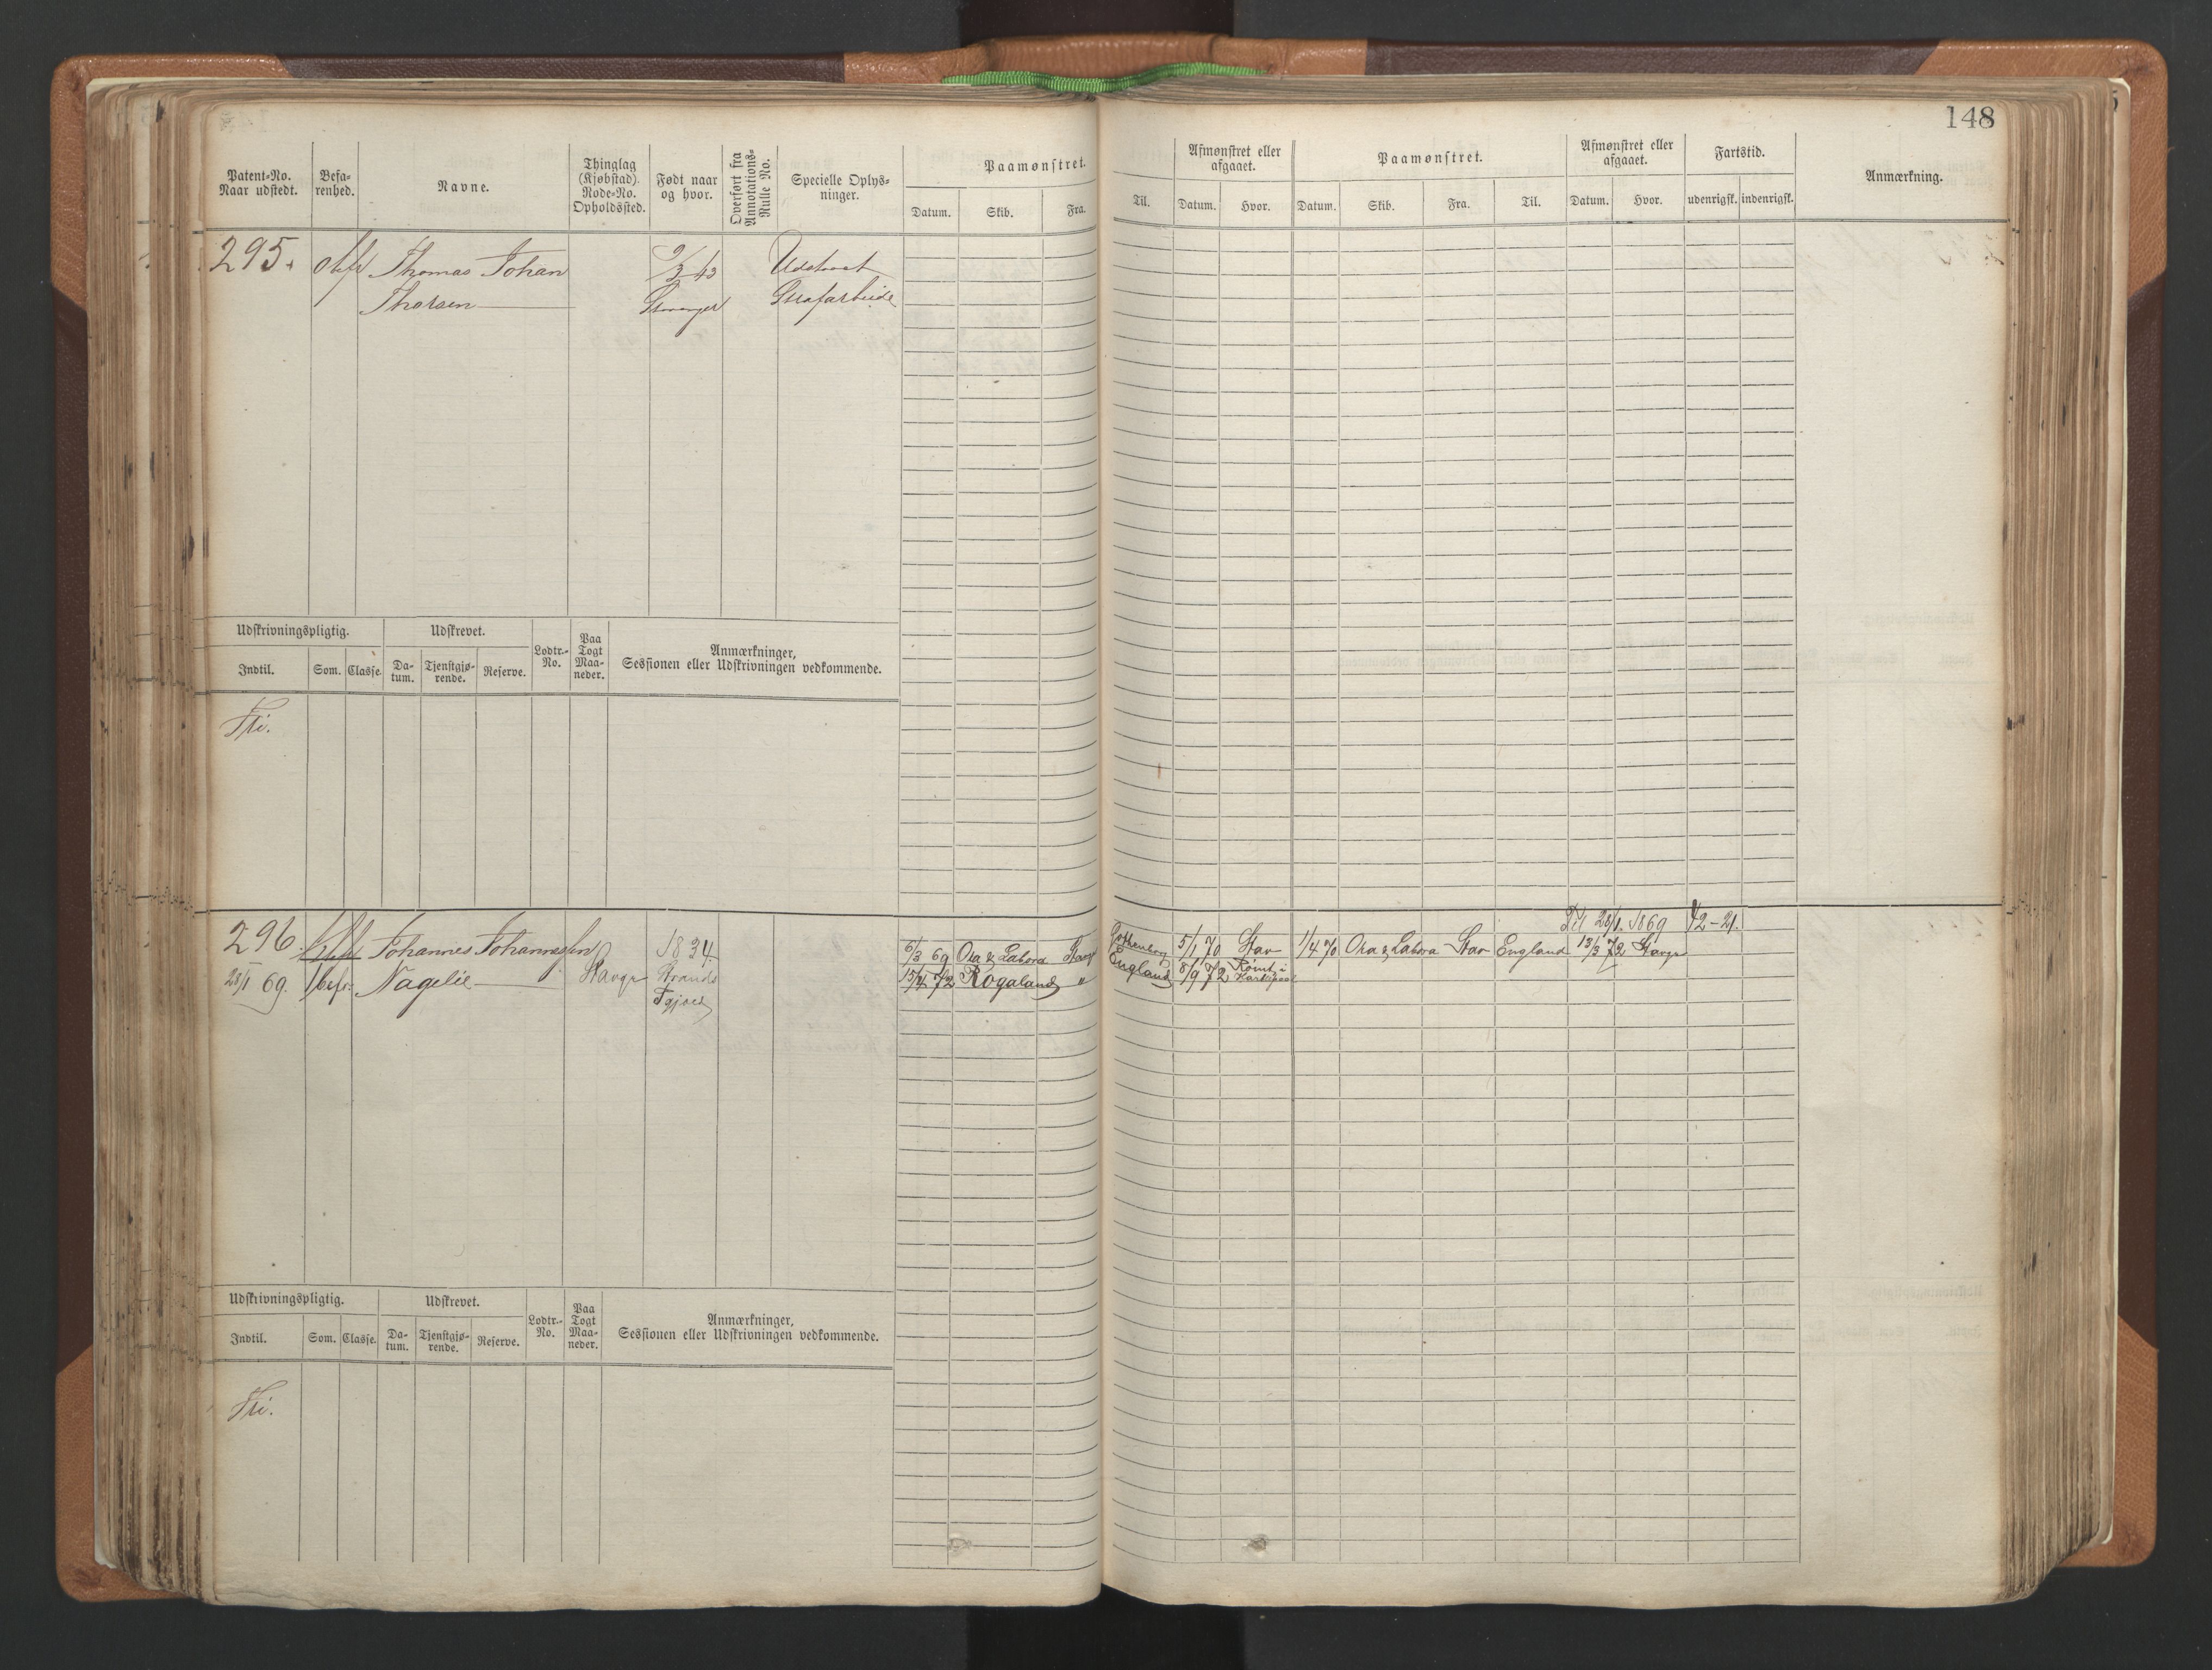 148
Patent-No. Naar udstedt.
Befa-renhed.
Navne.
Thinglag (Kjøbstad). Rode-No. Opholdssted.
Født naar og hvor.
Overført fra Annotations-Rulle No.
Specielle Oplys-ninger.
Paamønstret.
Datum. Skib. Fra. Til.
Afmønstret eller afgaaet.
Datum. Hvor.
Paamønstret.
Datum. Skib. Fra. Til.
Afmønstret eller afgaaet.
Datum. Hvor.
Fartstid.
udenrigsk. indenrigsk.
Anmærkning.
295. Thomas Johan 9/3 43 Udstaaet
Thorsen Stavanger Strafarbeide
Udskrivningspligtig. Udskrevet. Lodtr.-No. Paa Togt Maa-neder. Anmærkninger, Sessionen eller Udskrivningen vedkommende.
Indtil. Som. Classe. Da-tum. Tjenstgjø-rende. Reserve.
Fri.
Til 28/1. 1869 42-21.
296. Johannes Johannessen 1834. 6/3 69 Ora & Labora Stavgr Gothenborg 5/1 70 Stav 1/4 70 Ora & Labora Stav England 13/3 72 Stavgr
28/1 69. 1/2 bef. Nagelie Stavgr Strands 15/4 72 Rogaland " England 8/9 72 Rømt i
Udskrivningspligtig. Udskrevet. Lodtr.-No. Paa Togt Maa-neder. Anmærkninger, Sessionen eller Udskrivningen vedkommende.
Indtil. Som. Classe. Da-tum. Tjenstgjø-rende. Reserve.
Fri.